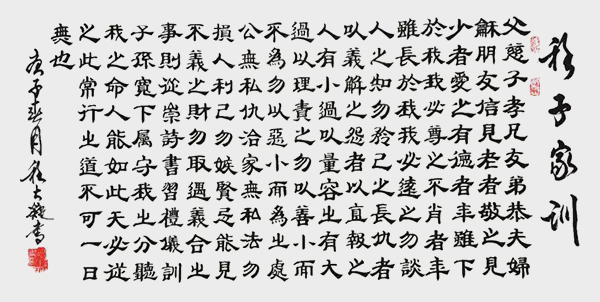 程子家训
父慈子孝兄友弟恭夫婦
穌朋友信見老者敬之見
少者愛之有德者年雖下
於我我必尊之不肖者年
雖長於我我必遠之勿談
人之短勿矜己之長仇者
以義解之怨者以直報之
人有小過以量容之有大
過以理責之勿以善小而
不為勿以惡小而為之處
公無私仇治家無私法勿
損人利己勿嫉賢妒能見
不義之財勿取遇義合之
事則從崇詩書習禮儀訓
子孫寬下属守我之分聽
我之命人能如此天必從
之此常行之道不可一日
無也
庚子春月程大書